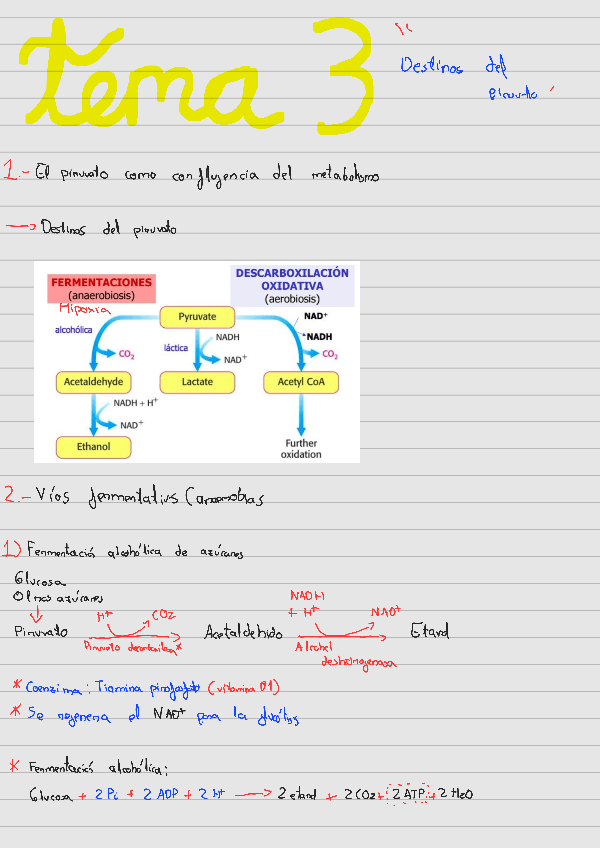 tema 3
" Destinos del
piruvato "
1.- El piruvato como confluencia del metabolismo
→ Destinos del piruvato
FERMENTACIONES
(anaerobiosis)
Hipoxia
DESCARBOXILACIÓN
OXIDATIVA
(aerobiosis)
Pyruvate
NAD⁺
NADH
CO₂
alcohólica
CO₂
láctica
NADH
NAD⁺
Acetaldehyde
Lactate
Acetyl CoA
NADH + H⁺
NAD⁺
Ethanol
Further
oxidation
2.- Vías fermentativas (anaerobias
1) Fermentació alcohólica de azúcares
Glucosa
Otros azúcares
Piruvato
H⁺
CO2
Piruvato descarboxilasa*
Acetaldehido
NADH
+ H⁺
NAD⁺
Alcohol
deshidrogenasa
Etanol
* Coenzima: Tiamina pirofosfato (vitamina B1)
* Se regenera el NAD⁺ para la glucólisis
* Fermentació alcohólica:
Glucosa + 2 Pi + 2 ADP + 2 H⁺ → 2 etanol + 2 CO2 + 2 ATP + 2 H2O